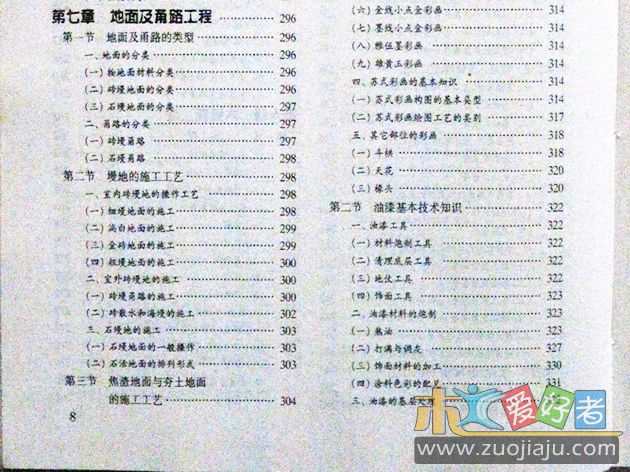 第七章 地面及甬路工程 ………… 296
第一节 地面及甬路的类型 ………… 296
一、地面的分类 ………… 296
(一) 按地面材料分类 ………… 296
(二) 砖墁地面的分类 ………… 296
(三) 石墁地面的分类 ………… 297
二、甬路的分类 ………… 297
(一) 砖墁甬路 ………… 297
(二) 石墁甬路 ………… 298
第二节 墁地的施工工艺 ………… 298
一、室内砖墁地的操作工艺 ………… 298
(一) 细墁地面的施工 ………… 298
(二) 淌白地面的施工 ………… 299
(三) 金砖地面的施工 ………… 299
(四) 粗墁地面的施工 ………… 300
二、室外砖墁地的施工 ………… 300
(一) 砖墁甬路的施工 ………… 300
(二) 砖散水和海墁的施工 ………… 302
三、石墁地的施工 ………… 303
(一) 石墁地面的一般操作 ………… 303
(二) 石活地面的排列形式 ………… 303
第三节 焦渣地面与夯土地面
的施工工艺 ………… 304
8
(六) 金线小点金彩画 ………… 314
(七) 墨线小点金彩画 ………… 314
(八) 雅伍墨彩画 ………… 314
(九) 雄黄玉彩画 ………… 314
四、苏式彩画的基本知识 ………… 314
(一) 苏式彩画构图的基本类型 ………… 314
(二) 苏式彩画绘图工艺的类别 ………… 317
五、其它部位的彩画 ………… 318
(一) 斗栱 ………… 318
(二) 天花 ………… 320
(三) 椽头 ………… 320
第二节 油漆基本技术知识 ………… 322
一、油漆工具 ………… 322
(一) 材料炮制工具 ………… 322
(二) 清理底层工具 ………… 322
(三) 地仗工具 ………… 322
(四) 饰面工具 ………… 323
二、油漆材料的炮制 ………… 323
(一) 熬油 ………… 323
(二) 打满与调灰 ………… 327
(三) 饰面材料的加工 ………… 330
(四) 涂料色彩的配兑 ………… 331
三、油漆的基层处理
木工爱好者
www.zuojiaju.com